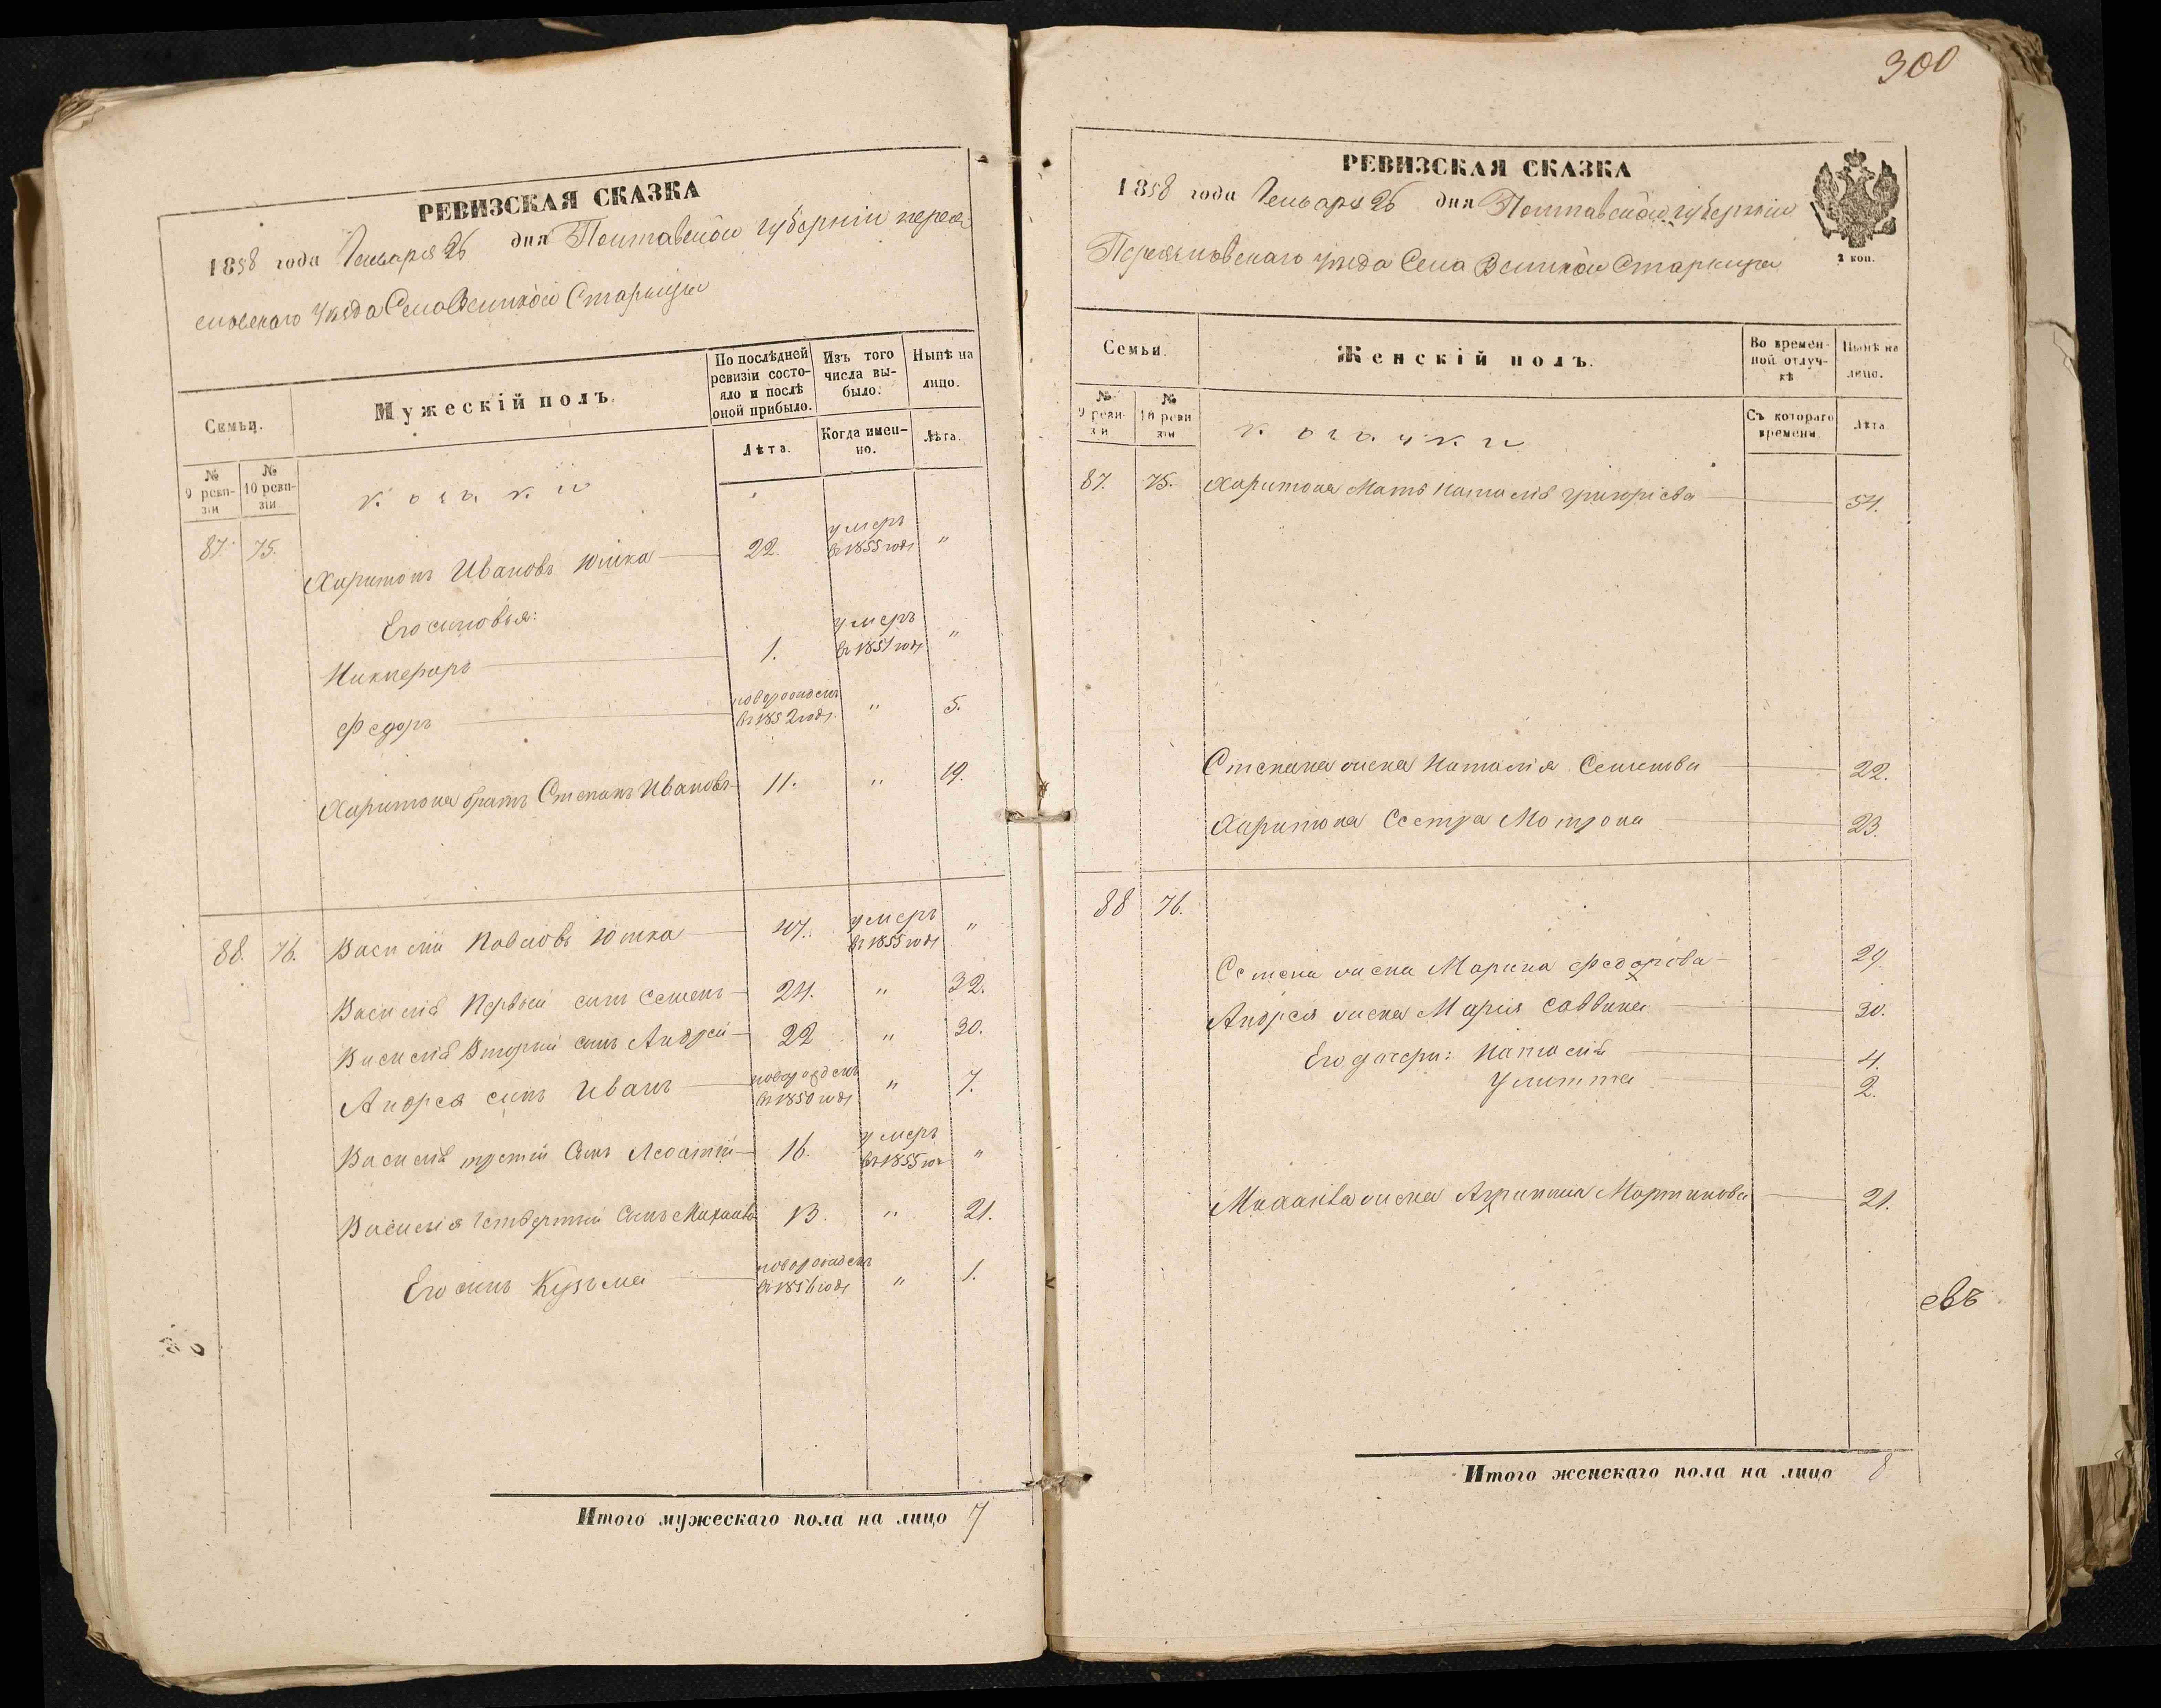 РЕВИЗСКАЯ СКАЗКА
1858 года Генваря 26 дня Полтавской губерніи перея-
славскаго уѣзда Села Великой Старицы
Семьи.
Мужескій полъ.
По послѣдней ревизіи состояло и послѣ оной прибыло.
Изъ того числа выбыло.
Нынѣ на лицо.
№ 9 ревизіи
№ 10 ревизіи
козаки
Лѣта.
Когда именно.
Лѣта.
87. 75. Харитонъ Ивановъ Юшка 22. умеръ въ 1855 годѣ "
Его сыновья:
Никифоръ 1. умеръ въ 1851 годѣ "
Федоръ новорожденъ въ 1852 годѣ " 5.
Харитона братъ Степанъ Ивановъ 11. " 19.
88. 76. Василій Павловъ Юшка 47. умеръ въ 1855 годѣ "
Василія Первый сынъ Семенъ 24. " 32.
Василія Вторый сынъ Андрей 22 " 30.
Андрея сынъ Иванъ новорожденъ въ 1850 годѣ " 7.
Василія третій Сынъ Леонтій 16. умеръ въ 1855 го "
Василія Четвертый Сынъ Михаилъ 13. " 21.
Его сынъ Кузьма новорожденъ въ 1856 годѣ " 1.
Итого мужескаго пола на лицо 7
300
РЕВИЗСКАЯ СКАЗКА
1858 года Генваря 26 дня Полтавской губерніи
Переяславскаго уѣзда Села Великой Старицы
2 коп.
Семьи.
Женскій полъ.
Во временной отлучкѣ
Нынѣ на лицо.
№ 9 ревизіи
№ 10 ревизіи
козачки
Съ котораго времени.
Лѣта
87. 75. Харитона Мать Наталія Григоріева 54.
Степана жена Наталія Семенова 22.
Харитона Сестра Мотрона 23.
88 76.
Семена жена Марина Федорова 29.
Андрея жена Марія Саввина 30.
Его дочери: Наталія 4.
Улитта 2.
Михаила жена Агрипина Мартинова 21.
евъ
Итого женскаго пола на лицо 8